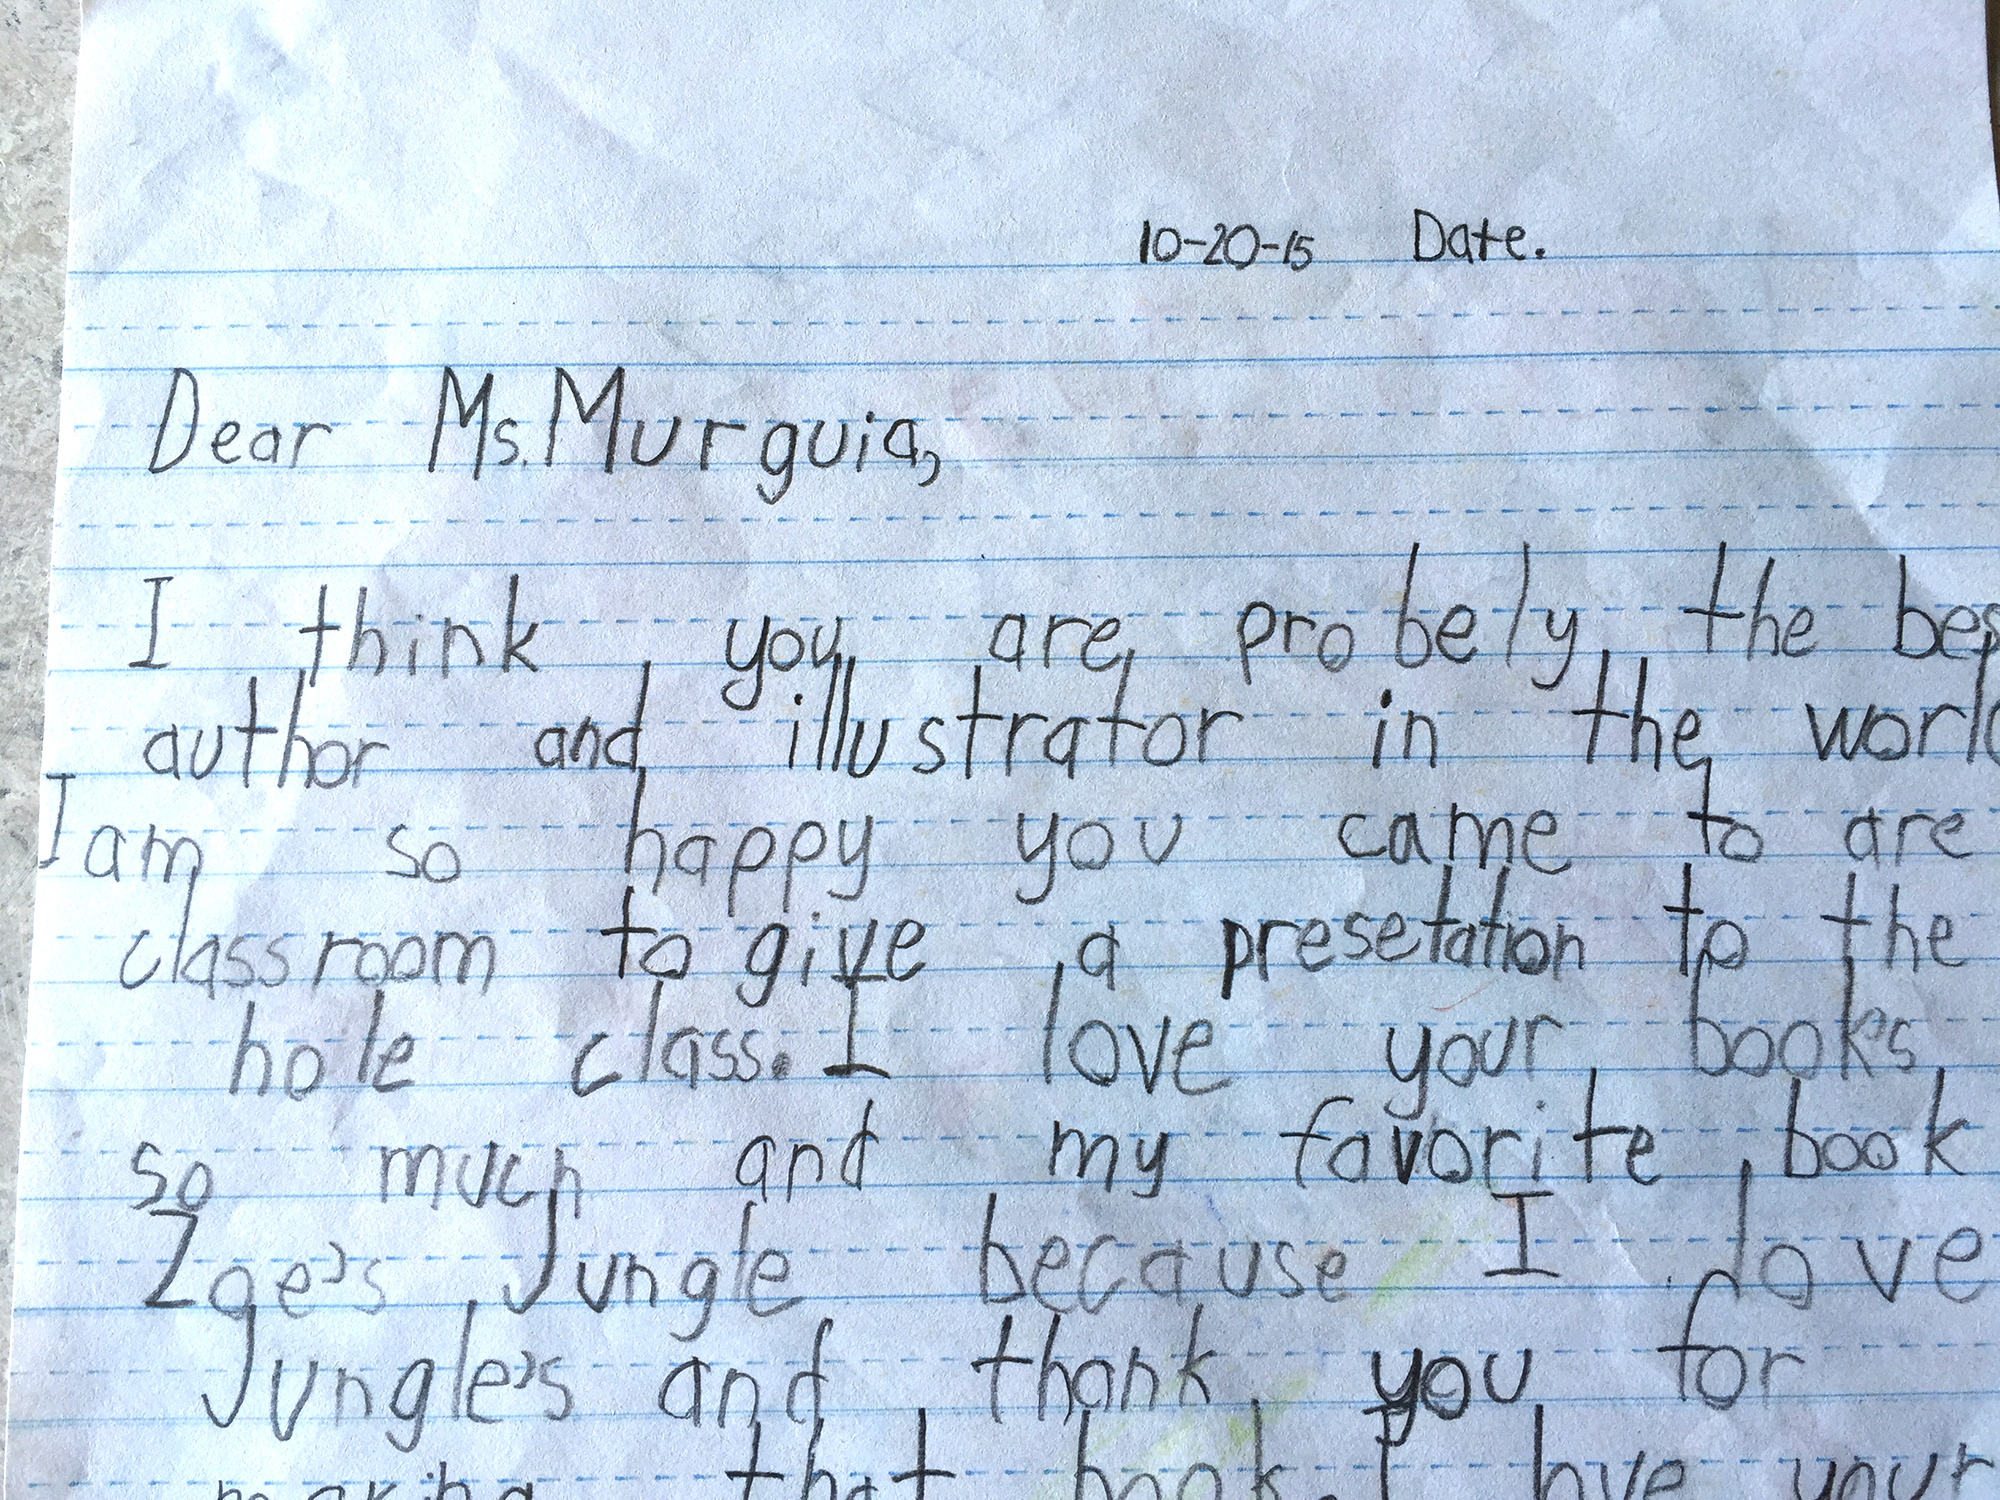 10-20-15 Date.
Dear Ms. Murguia,
I think you are probely the bes
author and illustrator in the worl
I am so happy you came to are
classroom to give a presetation to the
hole class. I love your books
so much and my favorite book
Zoe's Jungle because I love
Jungle's and thank you for
making that book. I love your